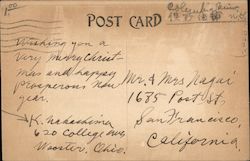 1.00
POST CARD
Wishing you a
very merry Christ-
mas and happy
prosperous new
year.
K. nakashima
620 College Ave,
Wooster, Ohio.
Mr. & Mrs Nagai
1685 Post St,
San Francisco,
California